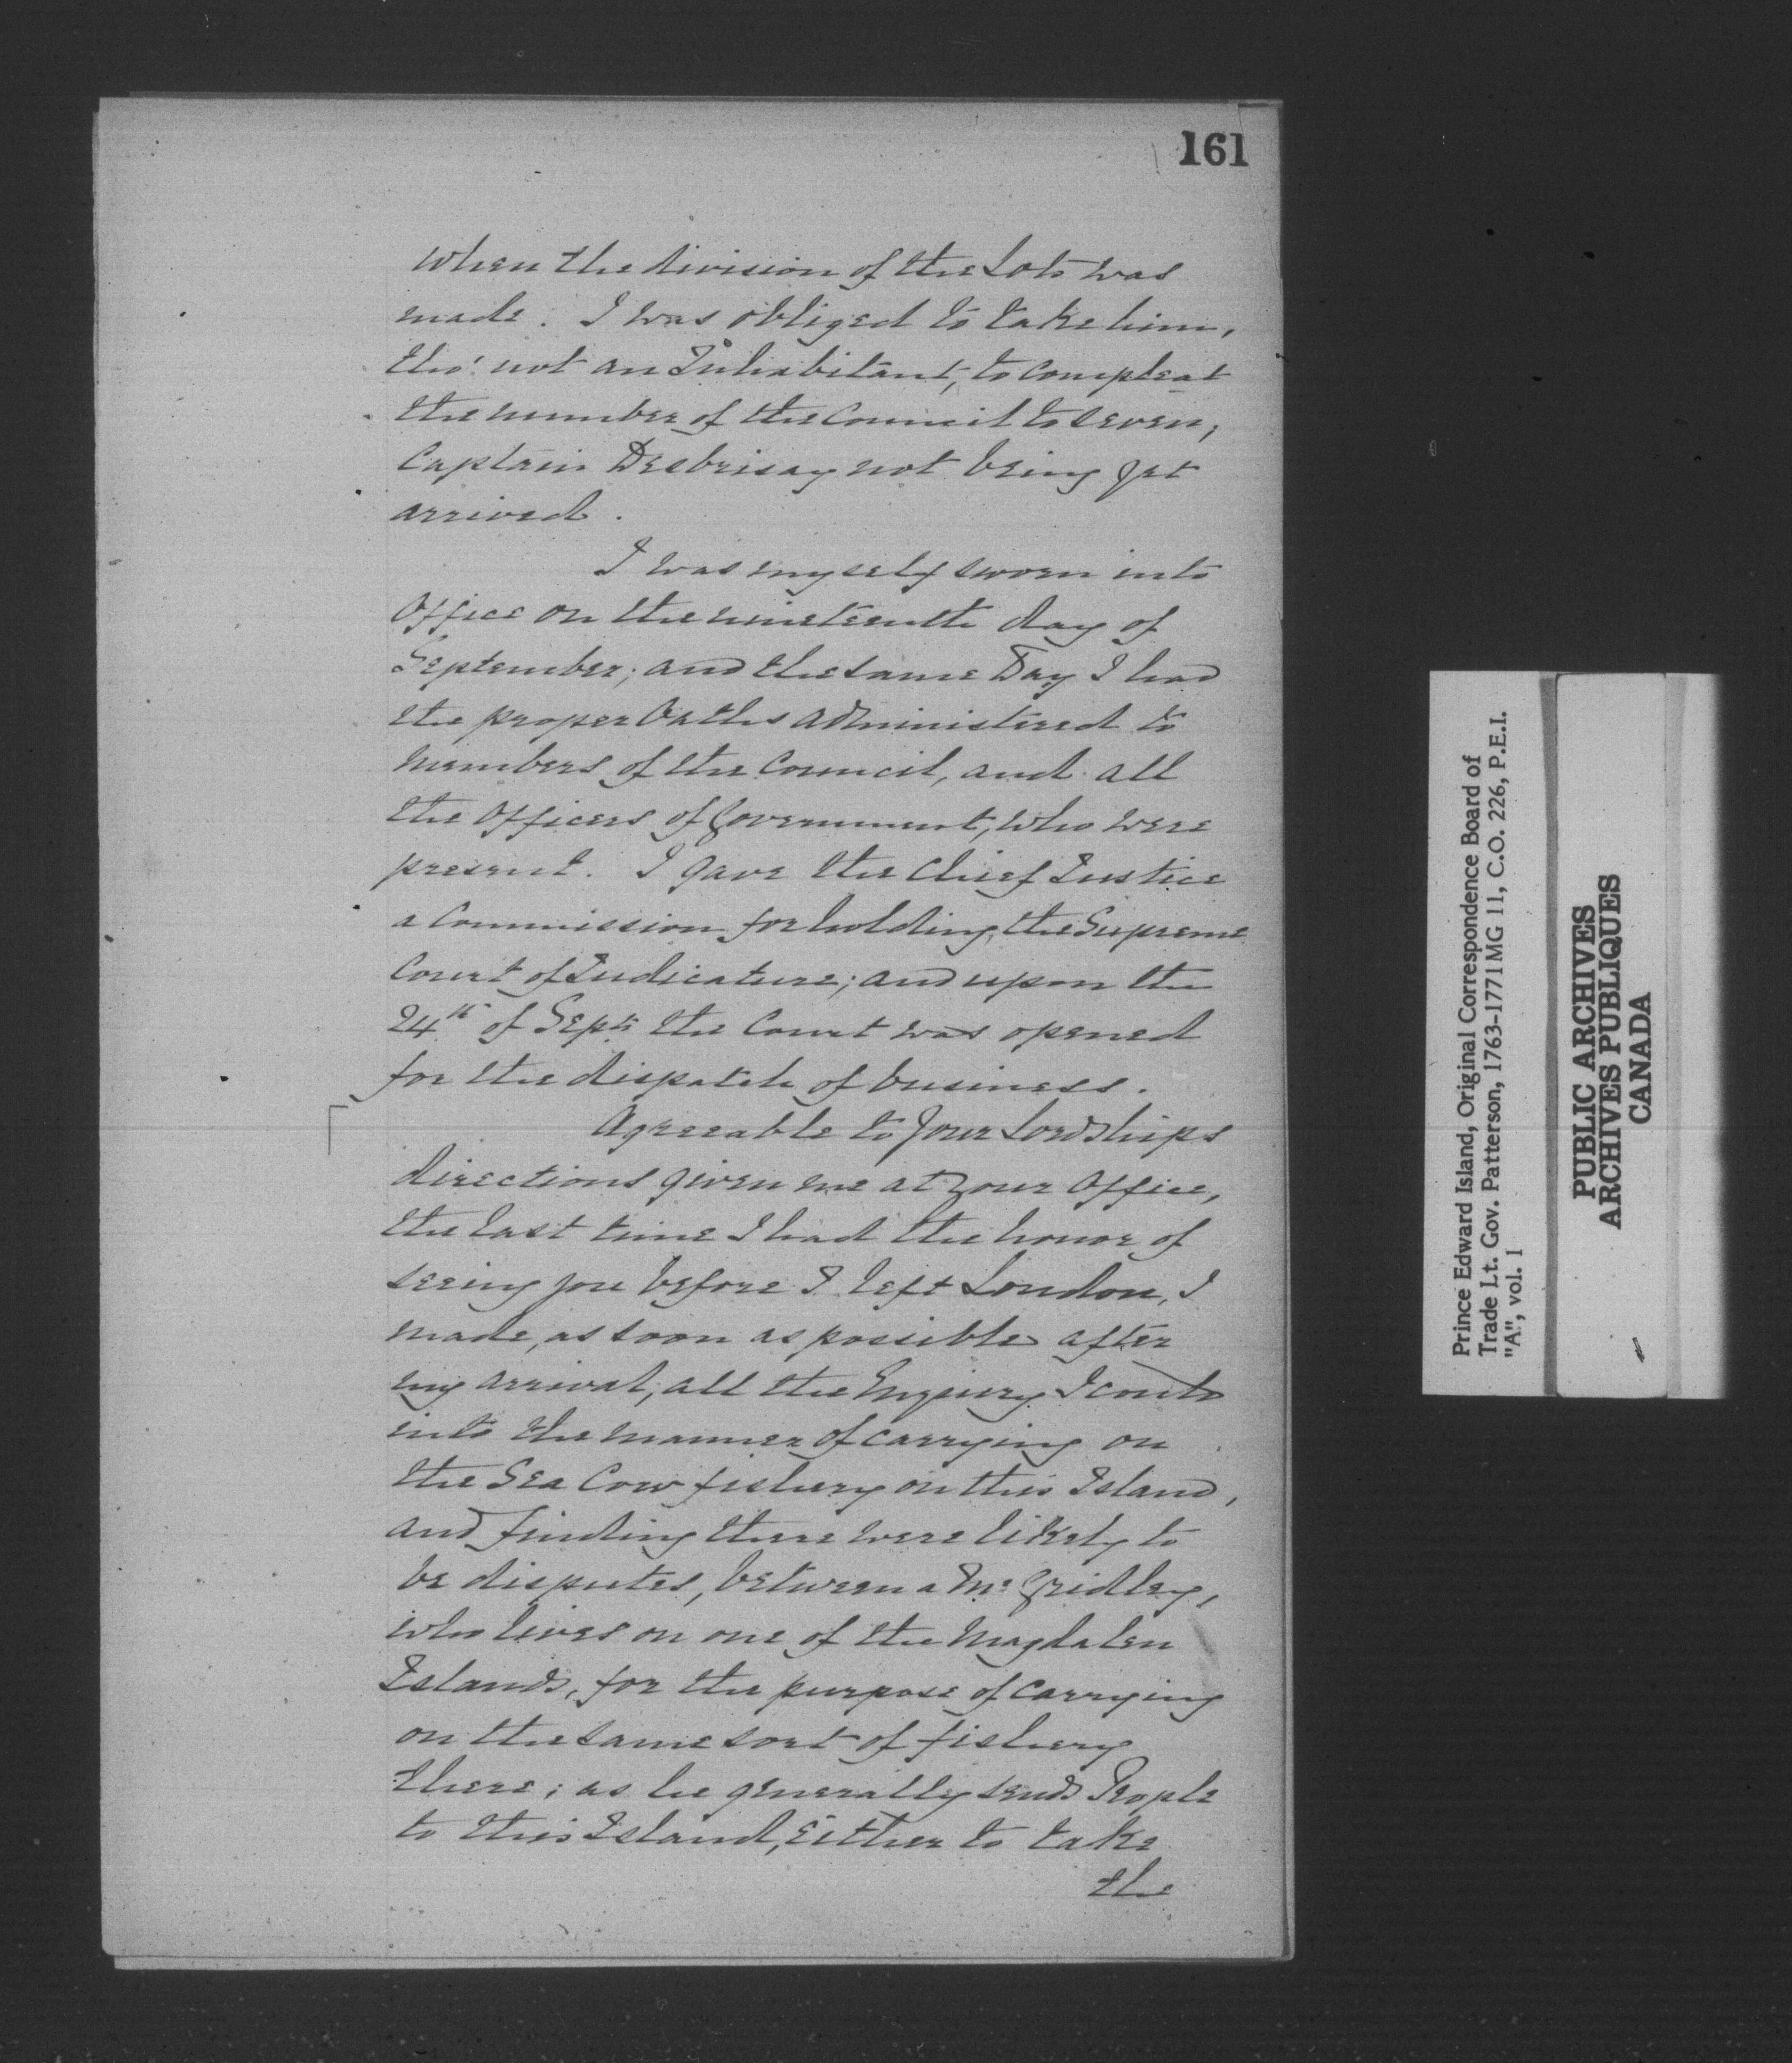 161
when the division of the Lots was
made. I was obliged to take him,
tho' not an Inhabitant, to compleat
the number of the Council to seven,
Captain Desbrisay not being yet
arrived.
I was myself sworn into
Office on the nineteenth day of
September; and the same Day I had
the proper Oaths administered to
Members of the Council, and all
the Officers of Government, who were
present. I gave the Chief Justice
a Commission for holding the Supreme
Court of Judicature; and upon the
24th of Sepr. the Court was opened
for the dispatch of business.
Agreeable to Your Lordships
directions given me at your Office,
the last time I had the honor of
seeing you before I left London, I
made, as soon as possible after
my arrival, all the Enquiry I could
into the manner of carrying on
the Sea Cow fishery on this Island,
and finding there were likely to
be disputes, between a Mr. Gridley,
who lives on one of the Magdalen
Islands, for the purpose of carrying
on the same sort of fishery
there; as he generally sends People
to this Island, Either to take
the
Prince Edward Island, Original Correspondence Board of
Trade Lt. Gov. Patterson, 1763-1771 MG 11, C.O. 226, P.E.I.
"A", vol. 1
PUBLIC ARCHIVES
ARCHIVES PUBLIQUES
CANADA